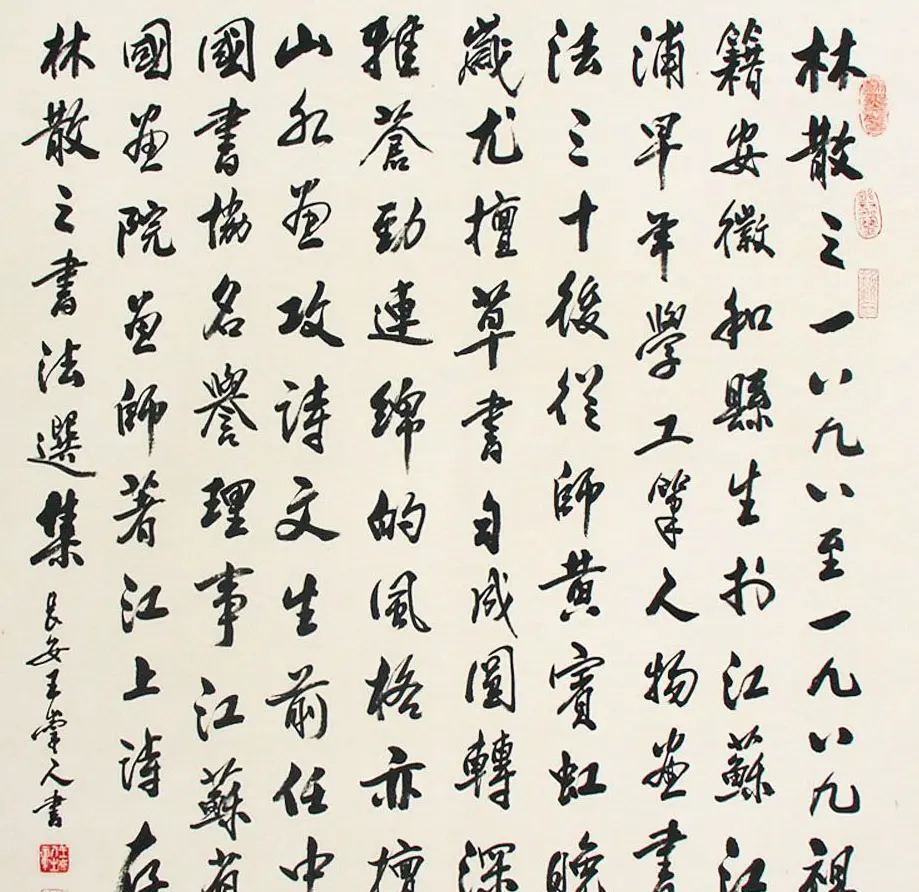 林散之一八九八至一九八九祖
籍安徽和縣生於江蘇江
浦早年學工筆人物畫書
法三十後從師黃賓虹晚
歲尤擅草書自成圓轉深
雅蒼勁連綿的風格亦擅
山水畫攻詩文生前任中
國書協名譽理事江蘇省
國畫院畫師著江上詩存
林散之書法選集
長安王崇人書